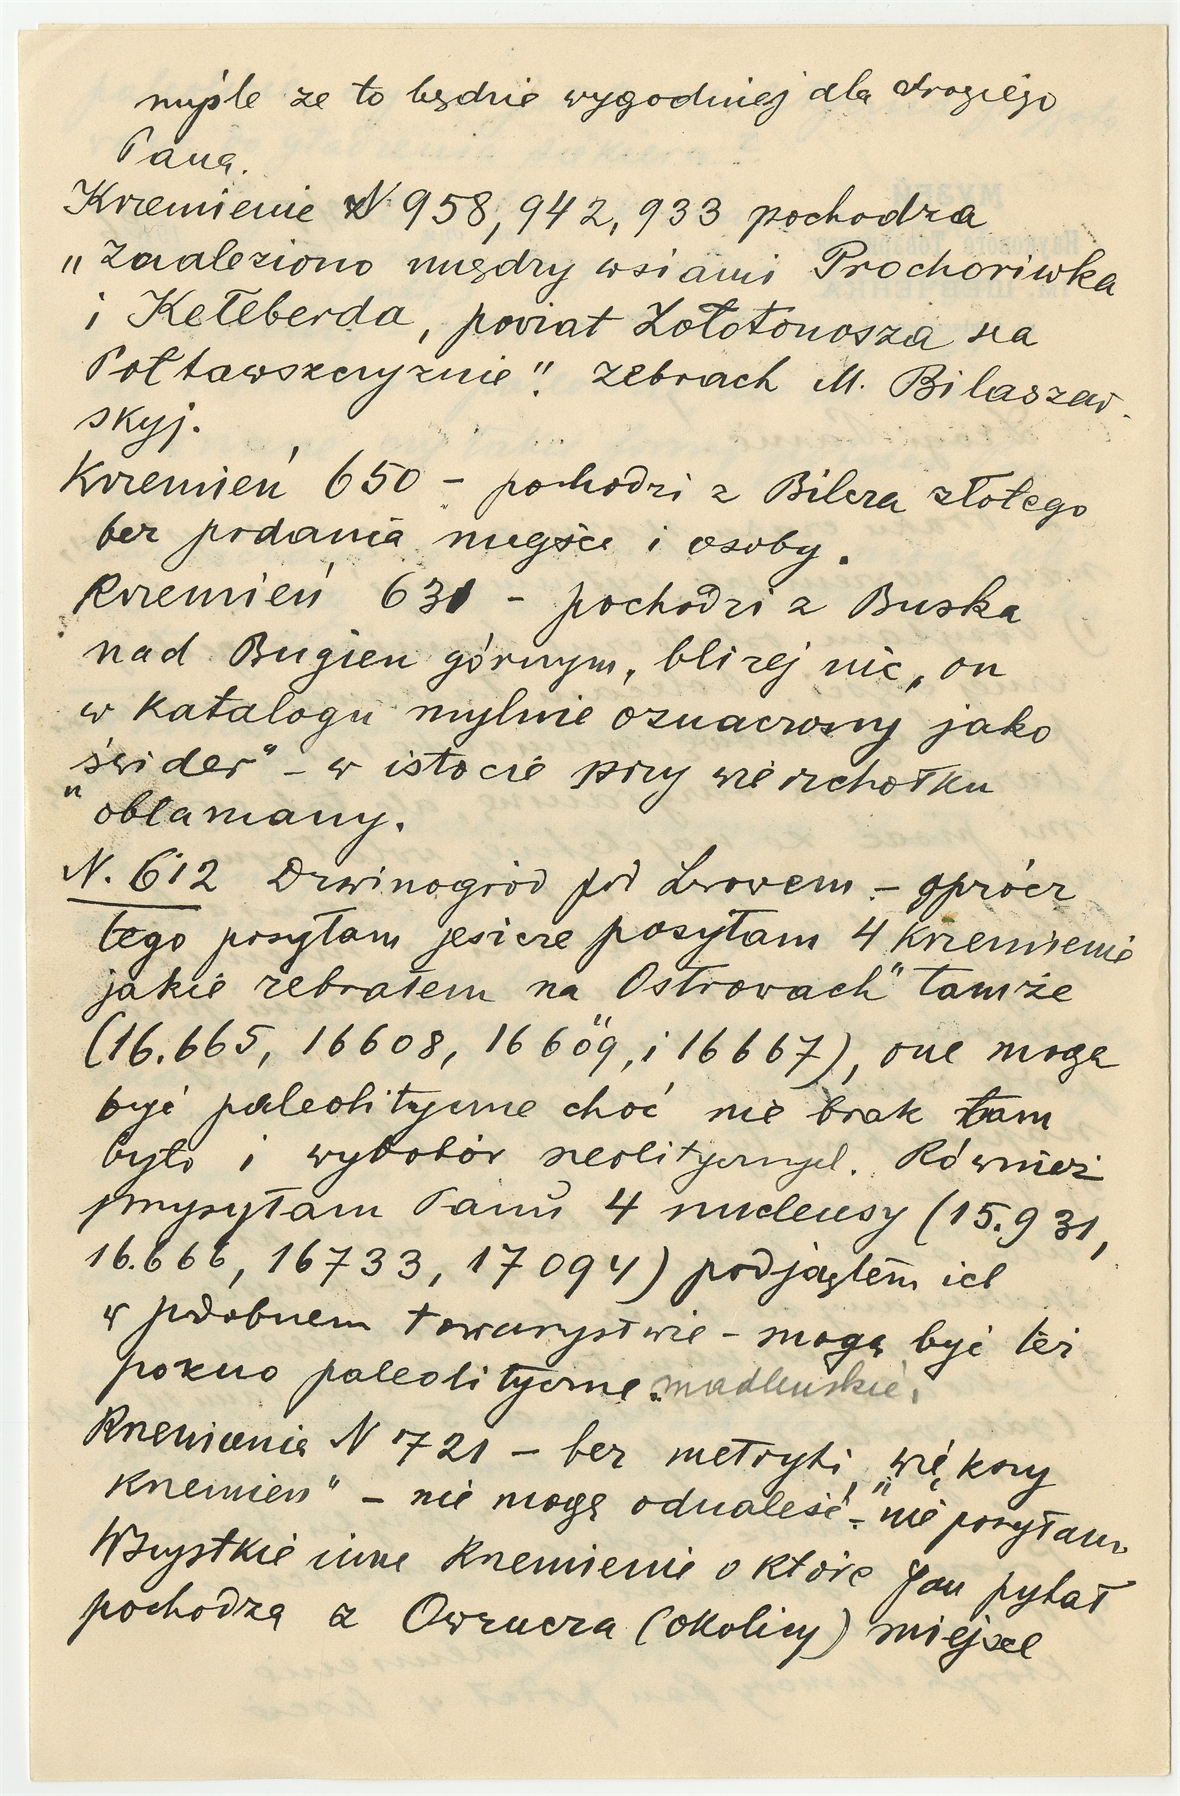 myśle ze to będzie wygodniej dla drogiego
Pana.
Krzemienie N 958, 942, 933 pochodza
„Znaleziono między wsiami Prochoriwka
i Keteberda, powiat Zołotonosza na
Połtawszczyznie". zebrach M. Bilaszew-
skyj.
Krzemień 650 - pochodzi z Bilcza złotego
bez podania miejsce i osoby.
Krzemień 631 - pochodzi z Buska
nad Bugien górnym, bliżej nic, on
w katalogu mylnie oznaczony jako
„świder" - w istocie przy wierzchołku
obłamany.
N. 612 Dzwinogród pod Lwowem - oprócz
tego posyłam jesicze posyłam 4 krzemienie
jakie zebrałem na Ostrowach" tamże
(16.665, 16608, 16609, i 16667), one moga
być paleolityczne choć nie brak tam
było i wyrobów neolitycznych. Również
przysyłam Panu 4 nucleusy (15.931,
16.666, 16733, 17094) podjąłem ich
w podobnem towarzystwie - mogą być też
pozno paleolityczne madlenskie.
Krzemienie N 721 - bez metryki, „większy
krzemień" - nie mogę odnaleść - nie posyłam
Wszystkie inne krzemienie o które Pan pytał
pochodzą z Owrucza (okolicy) miejsce